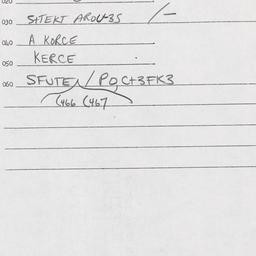 020
030 S+TEKT AROU+3S /-
040 A KORCE
050 KERCE
060 SFUTE / POC+3FK3
(466 (467